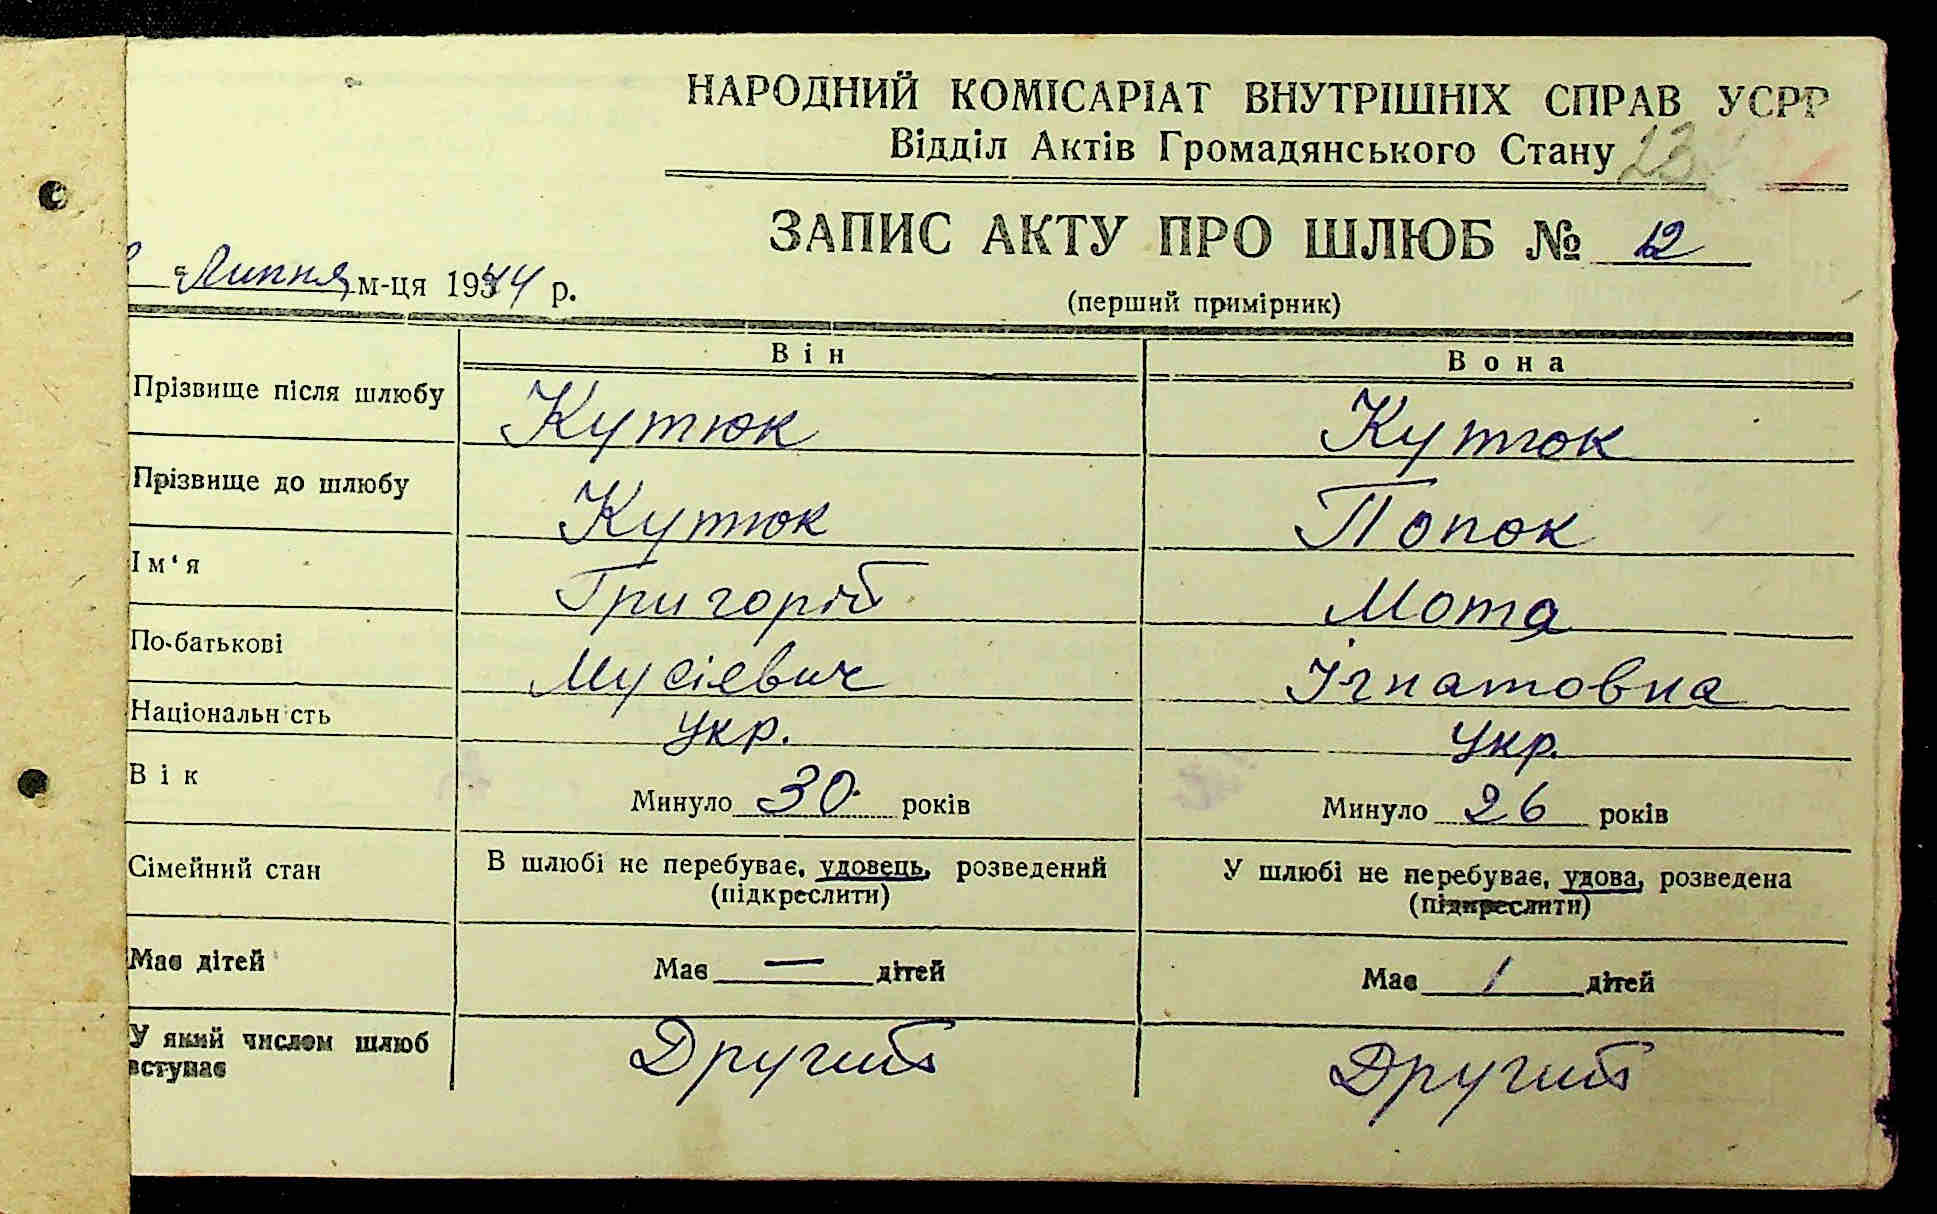 НАРОДНИЙ КОМІСАРІАТ ВНУТРІШНІХ СПРАВ УСРР
Відділ Актів Громадянського Стану
ЗАПИС АКТУ ПРО ШЛЮБ № 12
Липня м-ця 1944 р.
(перший примірник)
Він Вона
Прізвище після шлюбу Кутюк Кутюк
Прізвище до шлюбу Кутюк Попок
Ім‘я Григорій Мотя
По-батькові Мусієвич Ігнатовна
Національн сть укр. укр.
Вік Минуло 30 років Минуло 26 років
Сімейний стан В шлюбі не перебуває, удовець, розведений У шлюбі не перебуває, удова, розведена
(підкреслити) (підкреслити)
Має дітей Має — дітей Має 1 дітей
У який числом шлюб Другий Другий
вступає